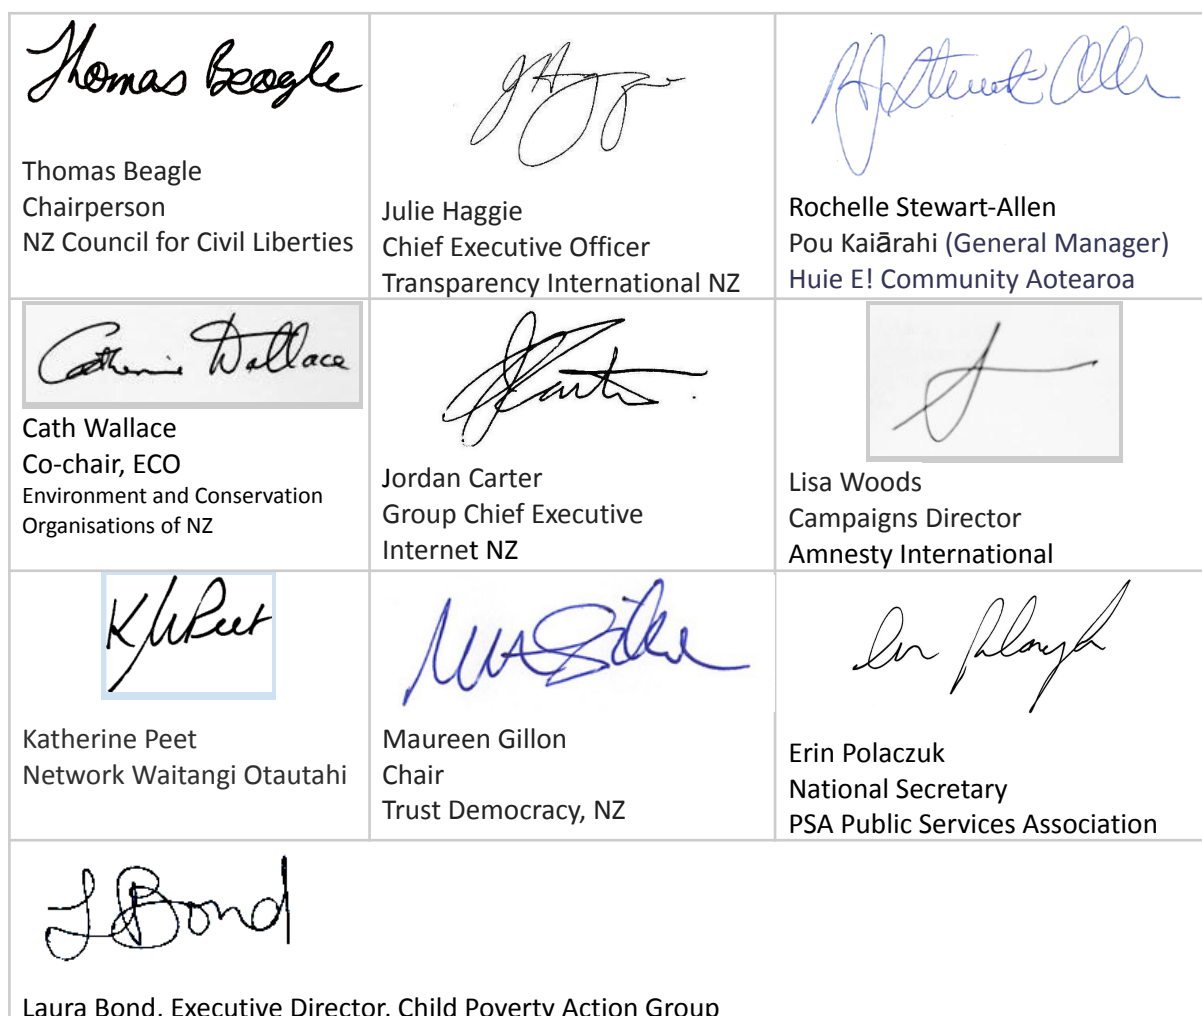 Thomas Beagle
Thomas Beagle
Chairperson
NZ Council for Civil Liberties
J Haggie
Julie Haggie
Chief Executive Officer
Transparency International NZ
Rochelle Stewart-Allen
Pou Kaiārahi (General Manager)
Huie E! Community Aotearoa
Catherine Wallace
Cath Wallace
Co-chair, ECO
Environment and Conservation
Organisations of NZ
Jordan Carter
Group Chief Executive
Internet NZ
Lisa Woods
Campaigns Director
Amnesty International
Katherine Peet
Network Waitangi Otautahi
Maureen Gillon
Chair
Trust Democracy, NZ
Erin Polaczuk
National Secretary
PSA Public Services Association
L Bond
Laura Bond, Executive Director, Child Poverty Action Group